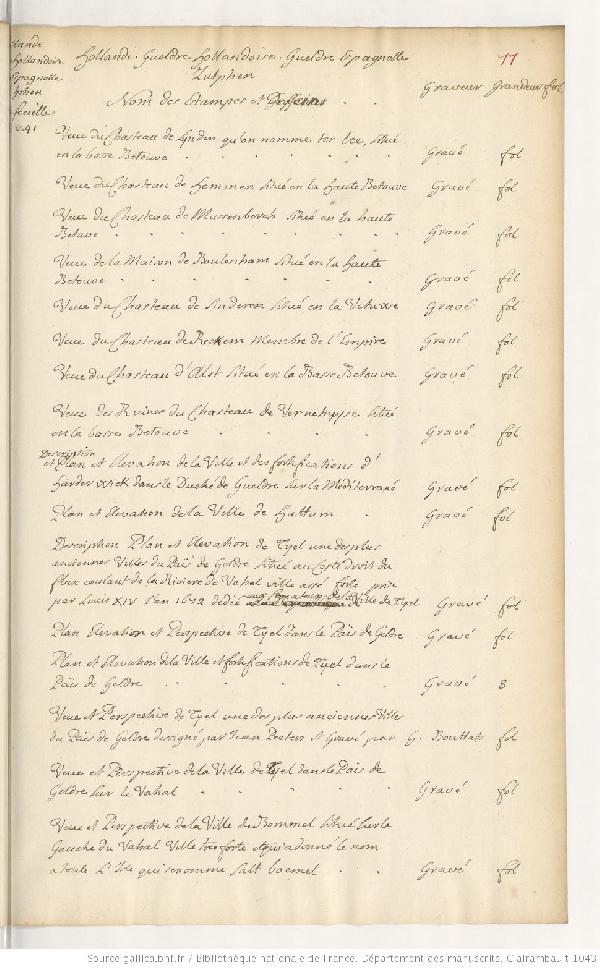 Hollande. Gueldre Hollandoise. Gueldre Espagnolle 77
Zutphen
Graveur Grandeur fol
Nom des Stampes et Desseins
llande
hollandoise
Espagnolle.
phen
feuille
241
Veue du Chasteau de Lynden qu'on nomme ter Lee, situé
en la basse Betouve . . . . . Gravé fol
Veue du Chasteau de Hemmen situé en la Haute Betouve Gravé fol
Veue du Chasteau de situé en la haute
Betuve . . . . . Gravé fol
Veue de la Maison de Boulenham située en la haute
Betouve . . . . . Gravé fol
Veue du Chasteau de Sinderen situé en la Veluwe Gravé fol
Veue du Chasteau de Reckem Membre de l'Empire Gravé fol
Veue du Chasteau d'Alst situé en la Basse Betouve Gravé fol
Veue des Ruines du Chasteau de situé
en la basse Betouve . . . . Gravé fol
Description
et Plan et Elevation de la Ville et des fortifications d'
Harderwick dans le Duché de Gueldre sur la Mediterrané Gravé fol
Plan et Elevation de la Ville de Hattum . Gravé fol
Description Plan et Elevation de Tyel une des plus
anciennes Villes du Païs de Geldre situé au Costé droit du
flux coulant de la Riviere de Vahal ville assé forte prise
par Louis XIV l'an 1672 dédié aux Senateurs de la Ville de Tyel Gravé fol
Plan Elevation et Perspective de Tyel dans le Païs de Geldre . Gravé fol
Plan et Elevation de la Ville et fortifications de Tyel dans le
Païs de Geldre . . . . . Gravé 8
Veue et Perspective de Tyel une des plus anciennes Ville
du Païs de Geldre designé par Jean Peeters et Gravé par G. Bouttats fol
Veue et Perspective de la Ville de Tyel dans le Païs de
Geldre sur le Vahal . . . . Gravé fol
Veue et Perspective de la Ville de Bommel situé sur la
Gauche du Vahal Ville tres forte et qui a donné le nom
a toute l'Isle qui se nomme Salt boemel . . Gravé fol
Source gallica.bnf.fr / Bibliothèque nationale de France. Département des manuscrits. Clairambault 1043